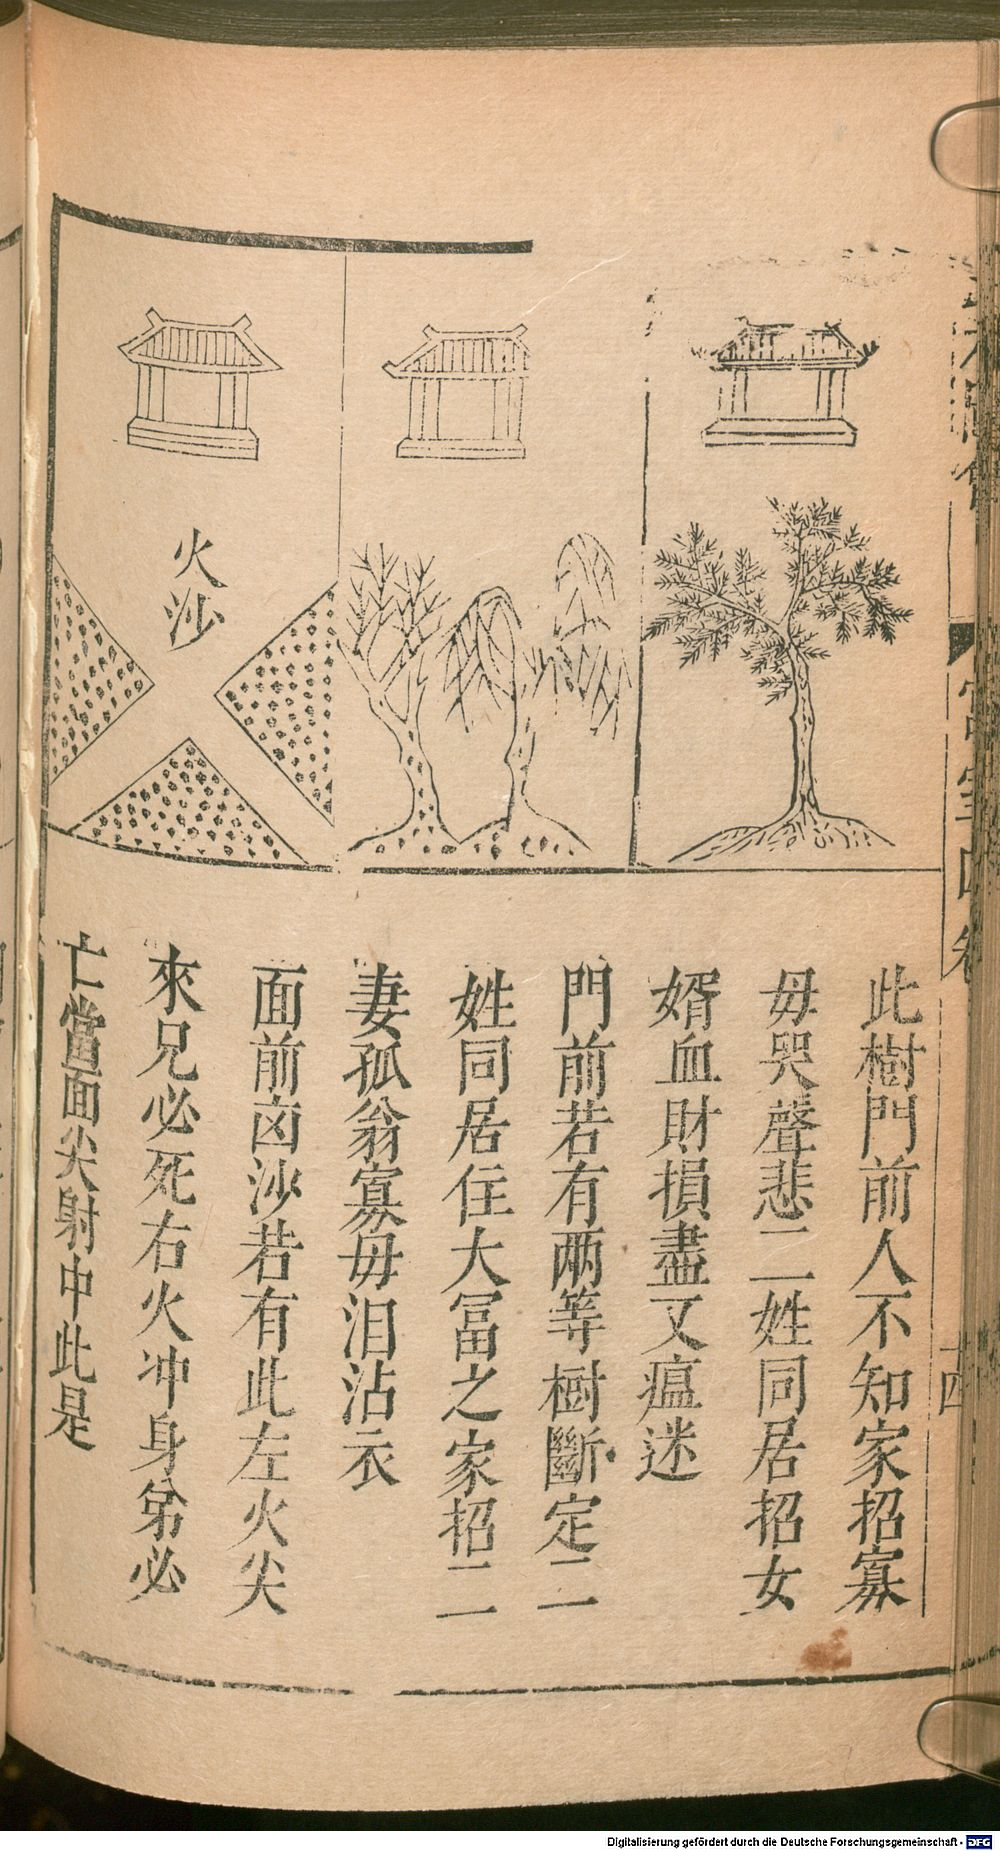 火沙
此樹門前人不知家招寡
毋哭聲悲二姓同居招女
婿血財損盡又瘟迷
門前若有兩等樹斷定二
姓同居住大冨之家招二
妻孤翁寡毋泪沾衣
面前凶沙若有此左火尖
來兄必死右火冲身弟必
亡當面尖射中此是
十四
Digitalisierung gefördert durch die Deutsche Forschungsgemeinschaft - DFG